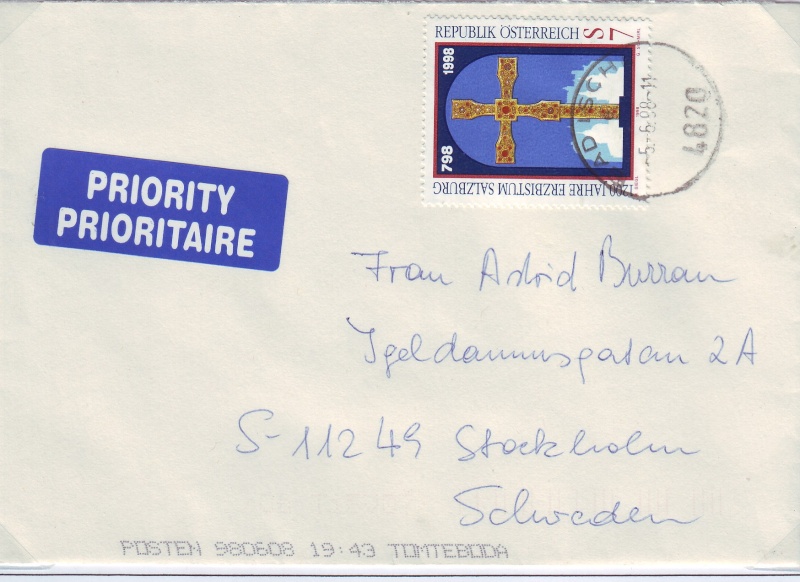 REPUBLIK ÖSTERREICH S 7
798 1998
1200 JAHRE ERZBISTUM SALZBURG
BAD ISCHL
-5.-6.98-11
4820
PRIORITY
PRIORITAIRE
Frau Astrid Burran
Igeldammsgatan 2A
S-11249 Stockholm
Schweden
POSTEN 980608 19:43 TOMTEBODA